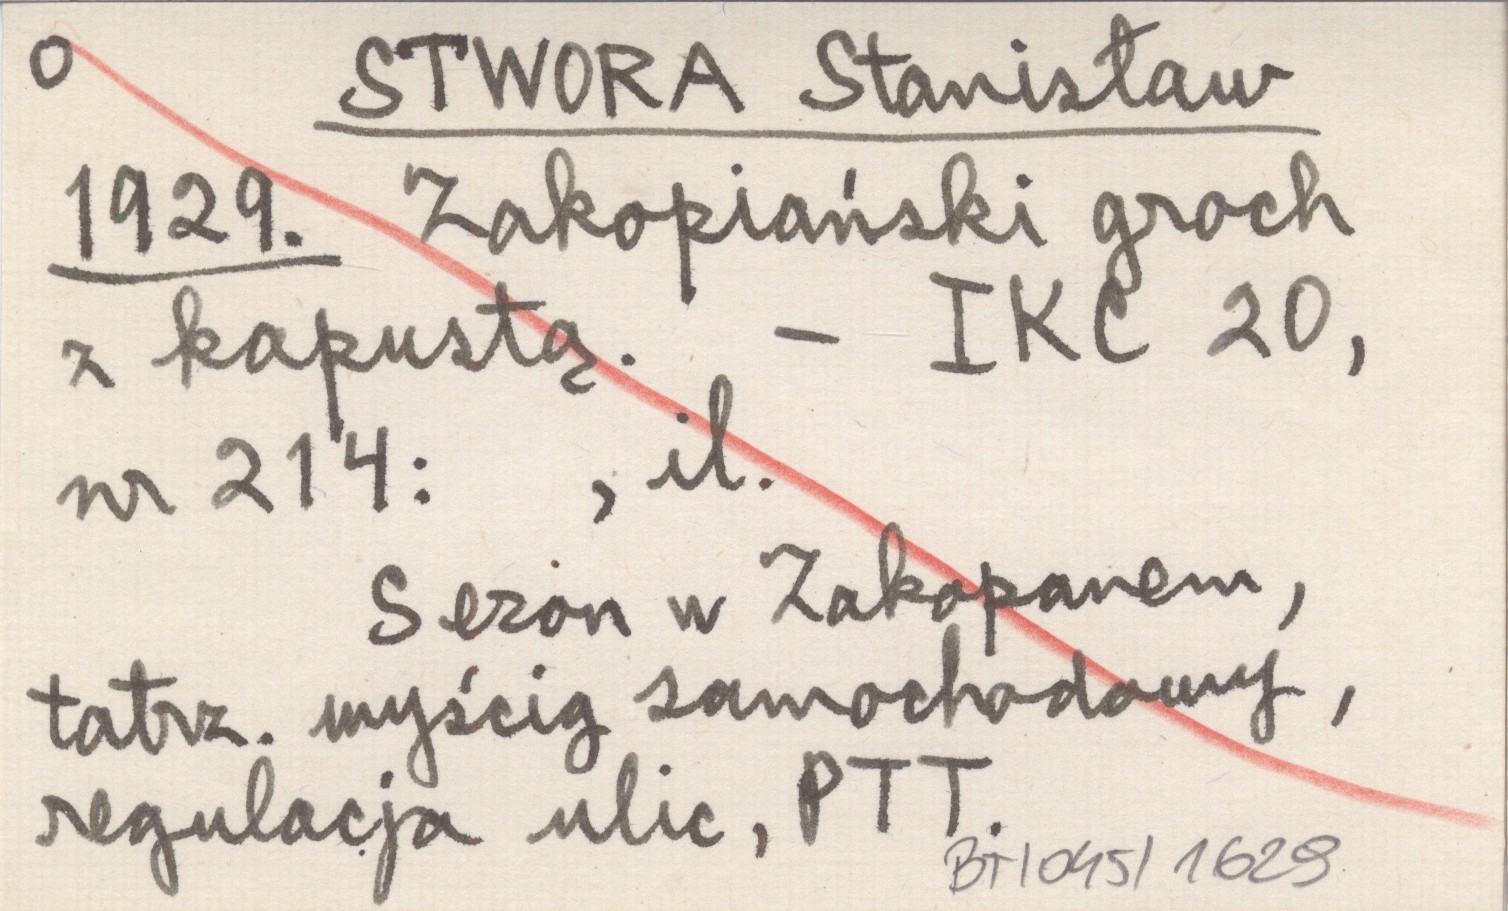 o STWORA Stanisław
1929. Zakopiański groch
z kapustą. - IKC 20,
nr 214: , il.
Sezon w Zakopanem,
tatrz. wyścig samochodowy,
regulacja ulic, PTT.
BT/045/1629